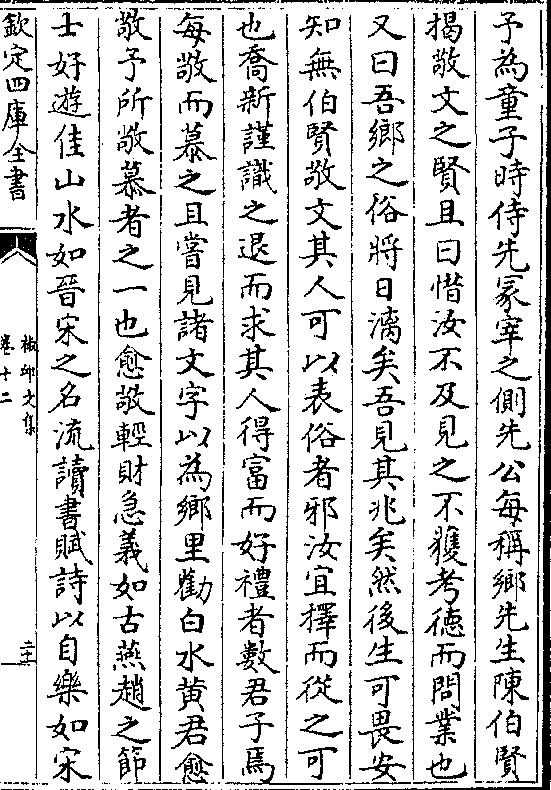 予為童子時侍先冢宰之側先公每稱鄉先生陳伯賢
揭敬文之賢且曰惜汝不及見之不獲考德而問業也
又曰吾鄉之俗將日漓矣吾見其兆矣然後生可畏安
知無伯賢敬文其人可以表俗者邪汝宜擇而從之可
也喬新謹識之退而求其人得富而好禮者數君子焉
每敬而慕之且嘗見諸文字以為鄉里勸白水黄君愈
敬予所敬慕者之一也愈敬輕財急義如古燕趙之節
士好遊佳山水如晉宋之名流讀書賦詩以自樂如宋
欽定四庫全書
椒邱文集
卷十二